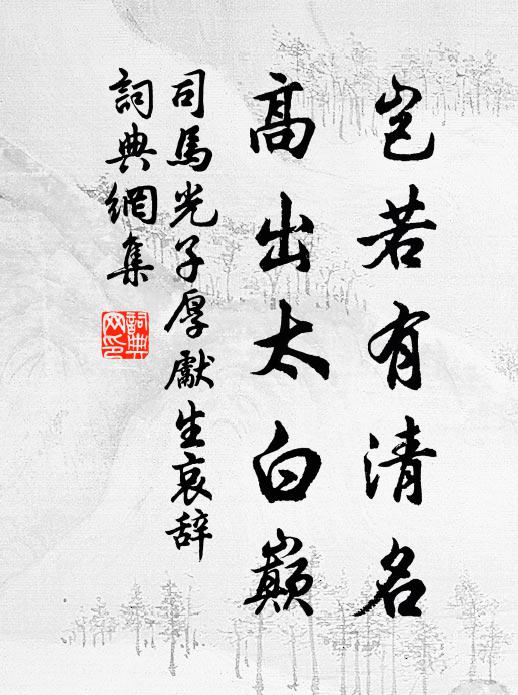 豈若有清名
高出太白巔
司馬光子厚獻生哀辞
詞典網集
詞典網印